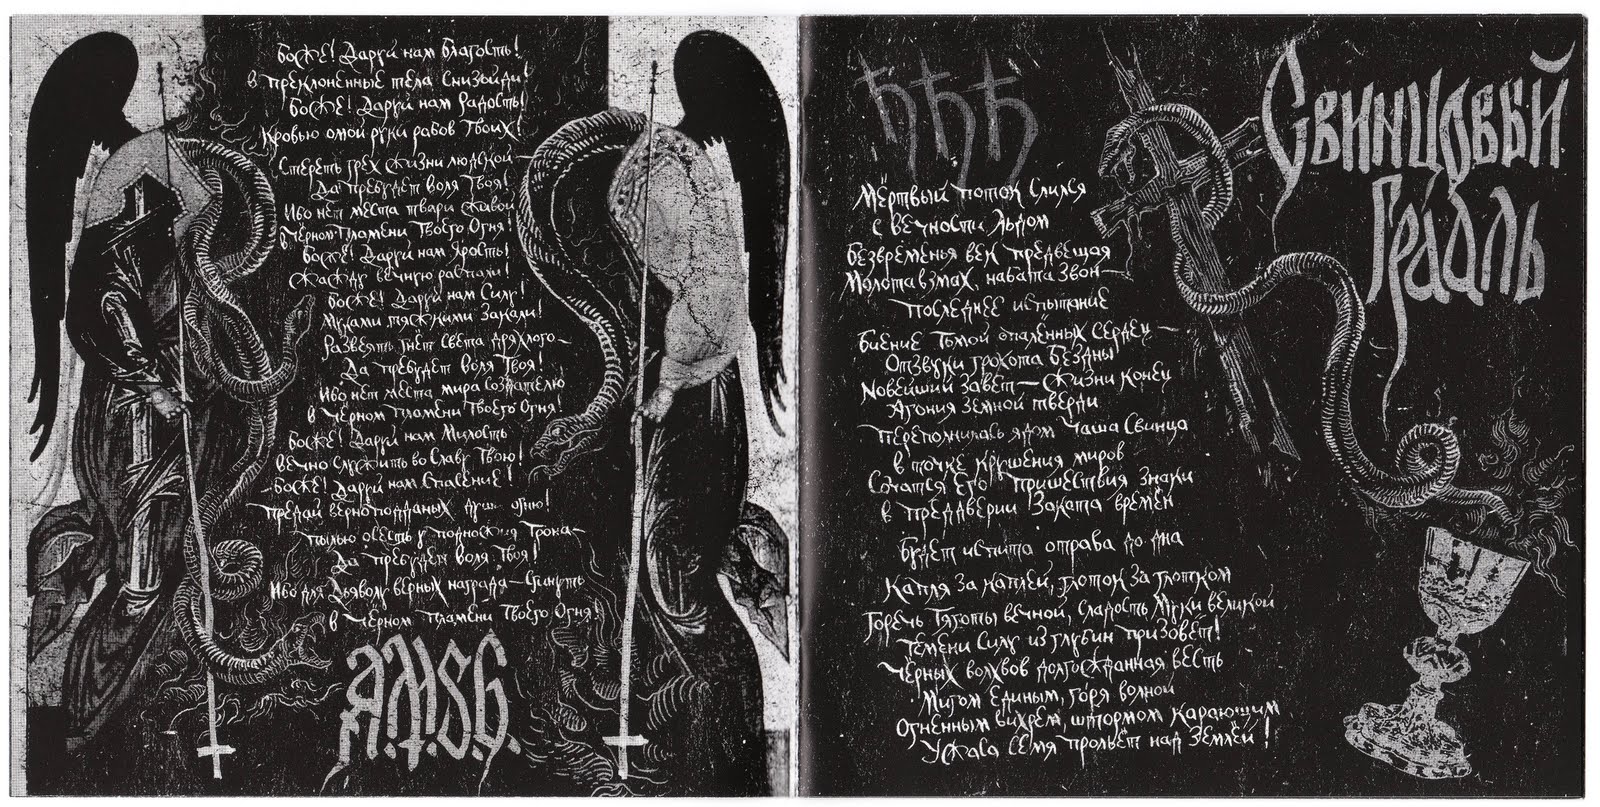 Боже! Даруй нам Благость!
В преклонённые тела Снизойди!
Боже! Даруй нам Радость!
Кровью омой руки рабов Твоих!
Стереть грех Жизни людской —
Да пребудет воля Твоя!
Ибо нет места твари живой
в Чёрном Пламени Твоего Огня!
Боже! Даруй нам Ярость!
Жажду вечную распали!
Боже! Даруй нам Силу!
Муками тяжкими Закали!
Развеять гнёт Света дряхлого —
Да пребудет воля Твоя!
Ибо нет места мира Создателю
в Чёрном Пламени Твоего Огня!
Боже! Даруй нам Милость
вечно служить во Славу Твою!
Боже! Даруй нам Спасение!
Предай верноподданых души огню!
Пылью осесть у подножия Трона —
Да пребудет воля Твоя!
Ибо для Дьяволу верных награда — Сгинуть
в Чёрном Пламени Твоего Огня!
Свинцовый
Грааль
Мёртвый поток Слился
с вечности Льдом
Безвременья век предвещая
Молота взмах, набата Звон —
Последнее испытание
Биение Тьмой опалённых Сердец —
Отзвуки грохота Бездны
Новейший Завет — Жизни Конец
Агония Земной тверди
Переполнилась ядом Чаша Свинца
в точке крушения миров
Сочатся Его Пришествия Знаки
в преддверии Заката времён
Будет испита отрава до дна
Капля За каплей, глоток За глотком
Горечь Тяготы вечной, сладость Муки великой
Темени Силу из глубин призовёт!
Чёрных волхвов долгожданная весть
Мигом единым, горя волной
Огненным вихрем, штормом карающим
Ужаса семя прольёт над Землёй!